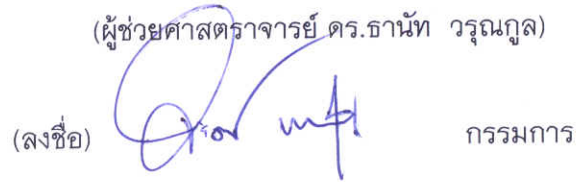 (ผู้ช่วยศาสตราจารย์ ดร.ธานัท วรุณกูล)
(ลงชื่อ) กรรมการ